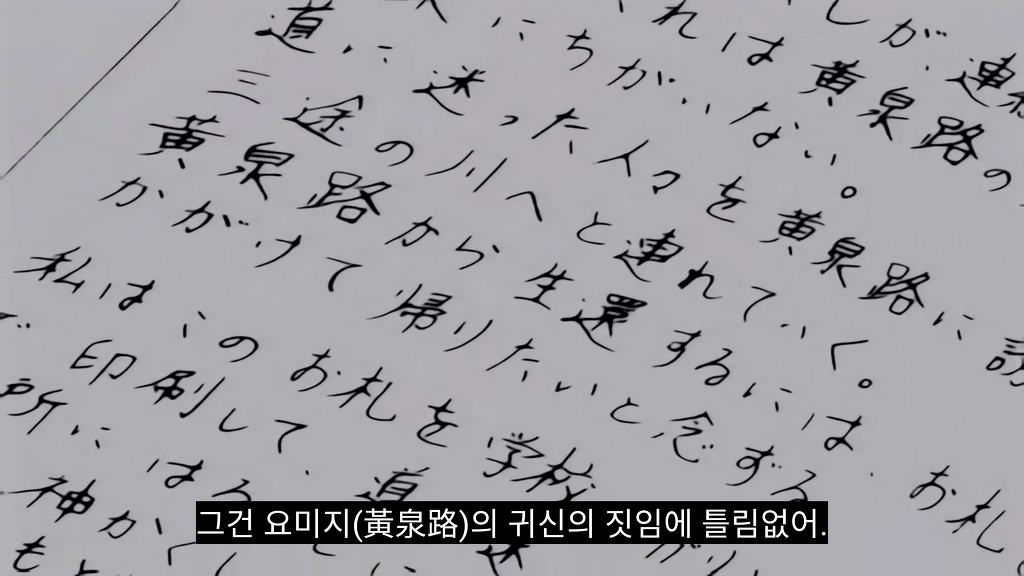 しが、連れ
れは黄泉路の
にちがいない。
道に迷った人を黄泉路に誘
三途の川へと連れていく。
黄泉路から生還するには、お札
かかげて帰りたいと念ずる
私はこのお札を学校
印刷して、道
所に
神か
も
그건 요미지(黃泉路)의 귀신의 짓임에 틀림없어.